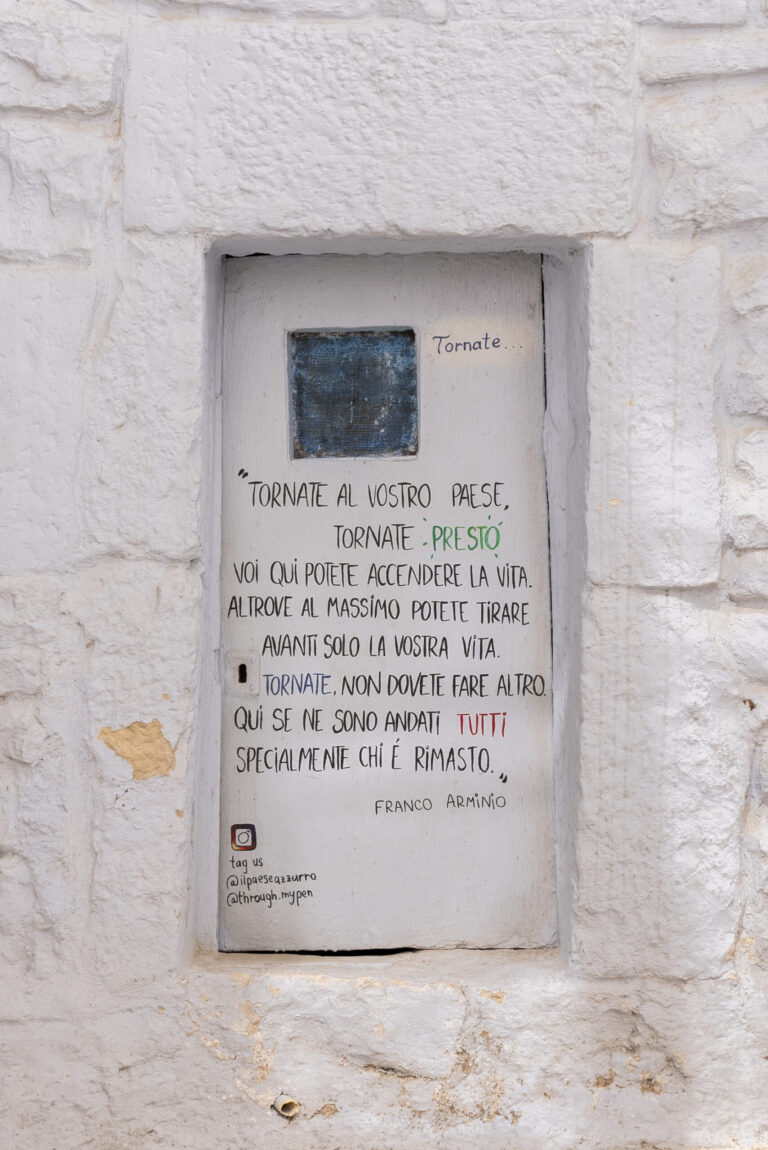 Tornate...
"TORNATE AL VOSTRO PAESE,
TORNATE PRESTO
VOI QUI POTETE ACCENDERE LA VITA.
ALTROVE AL MASSIMO POTETE TIRARE
AVANTI SOLO LA VOSTRA VITA.
TORNATE, NON DOVETE FARE ALTRO.
QUI SE NE SONO ANDATI TUTTI
SPECIALMENTE CHI É RIMASTO."
FRANCO ARMINIO
tag us
@ilpaeseazzurro
@through.mypen